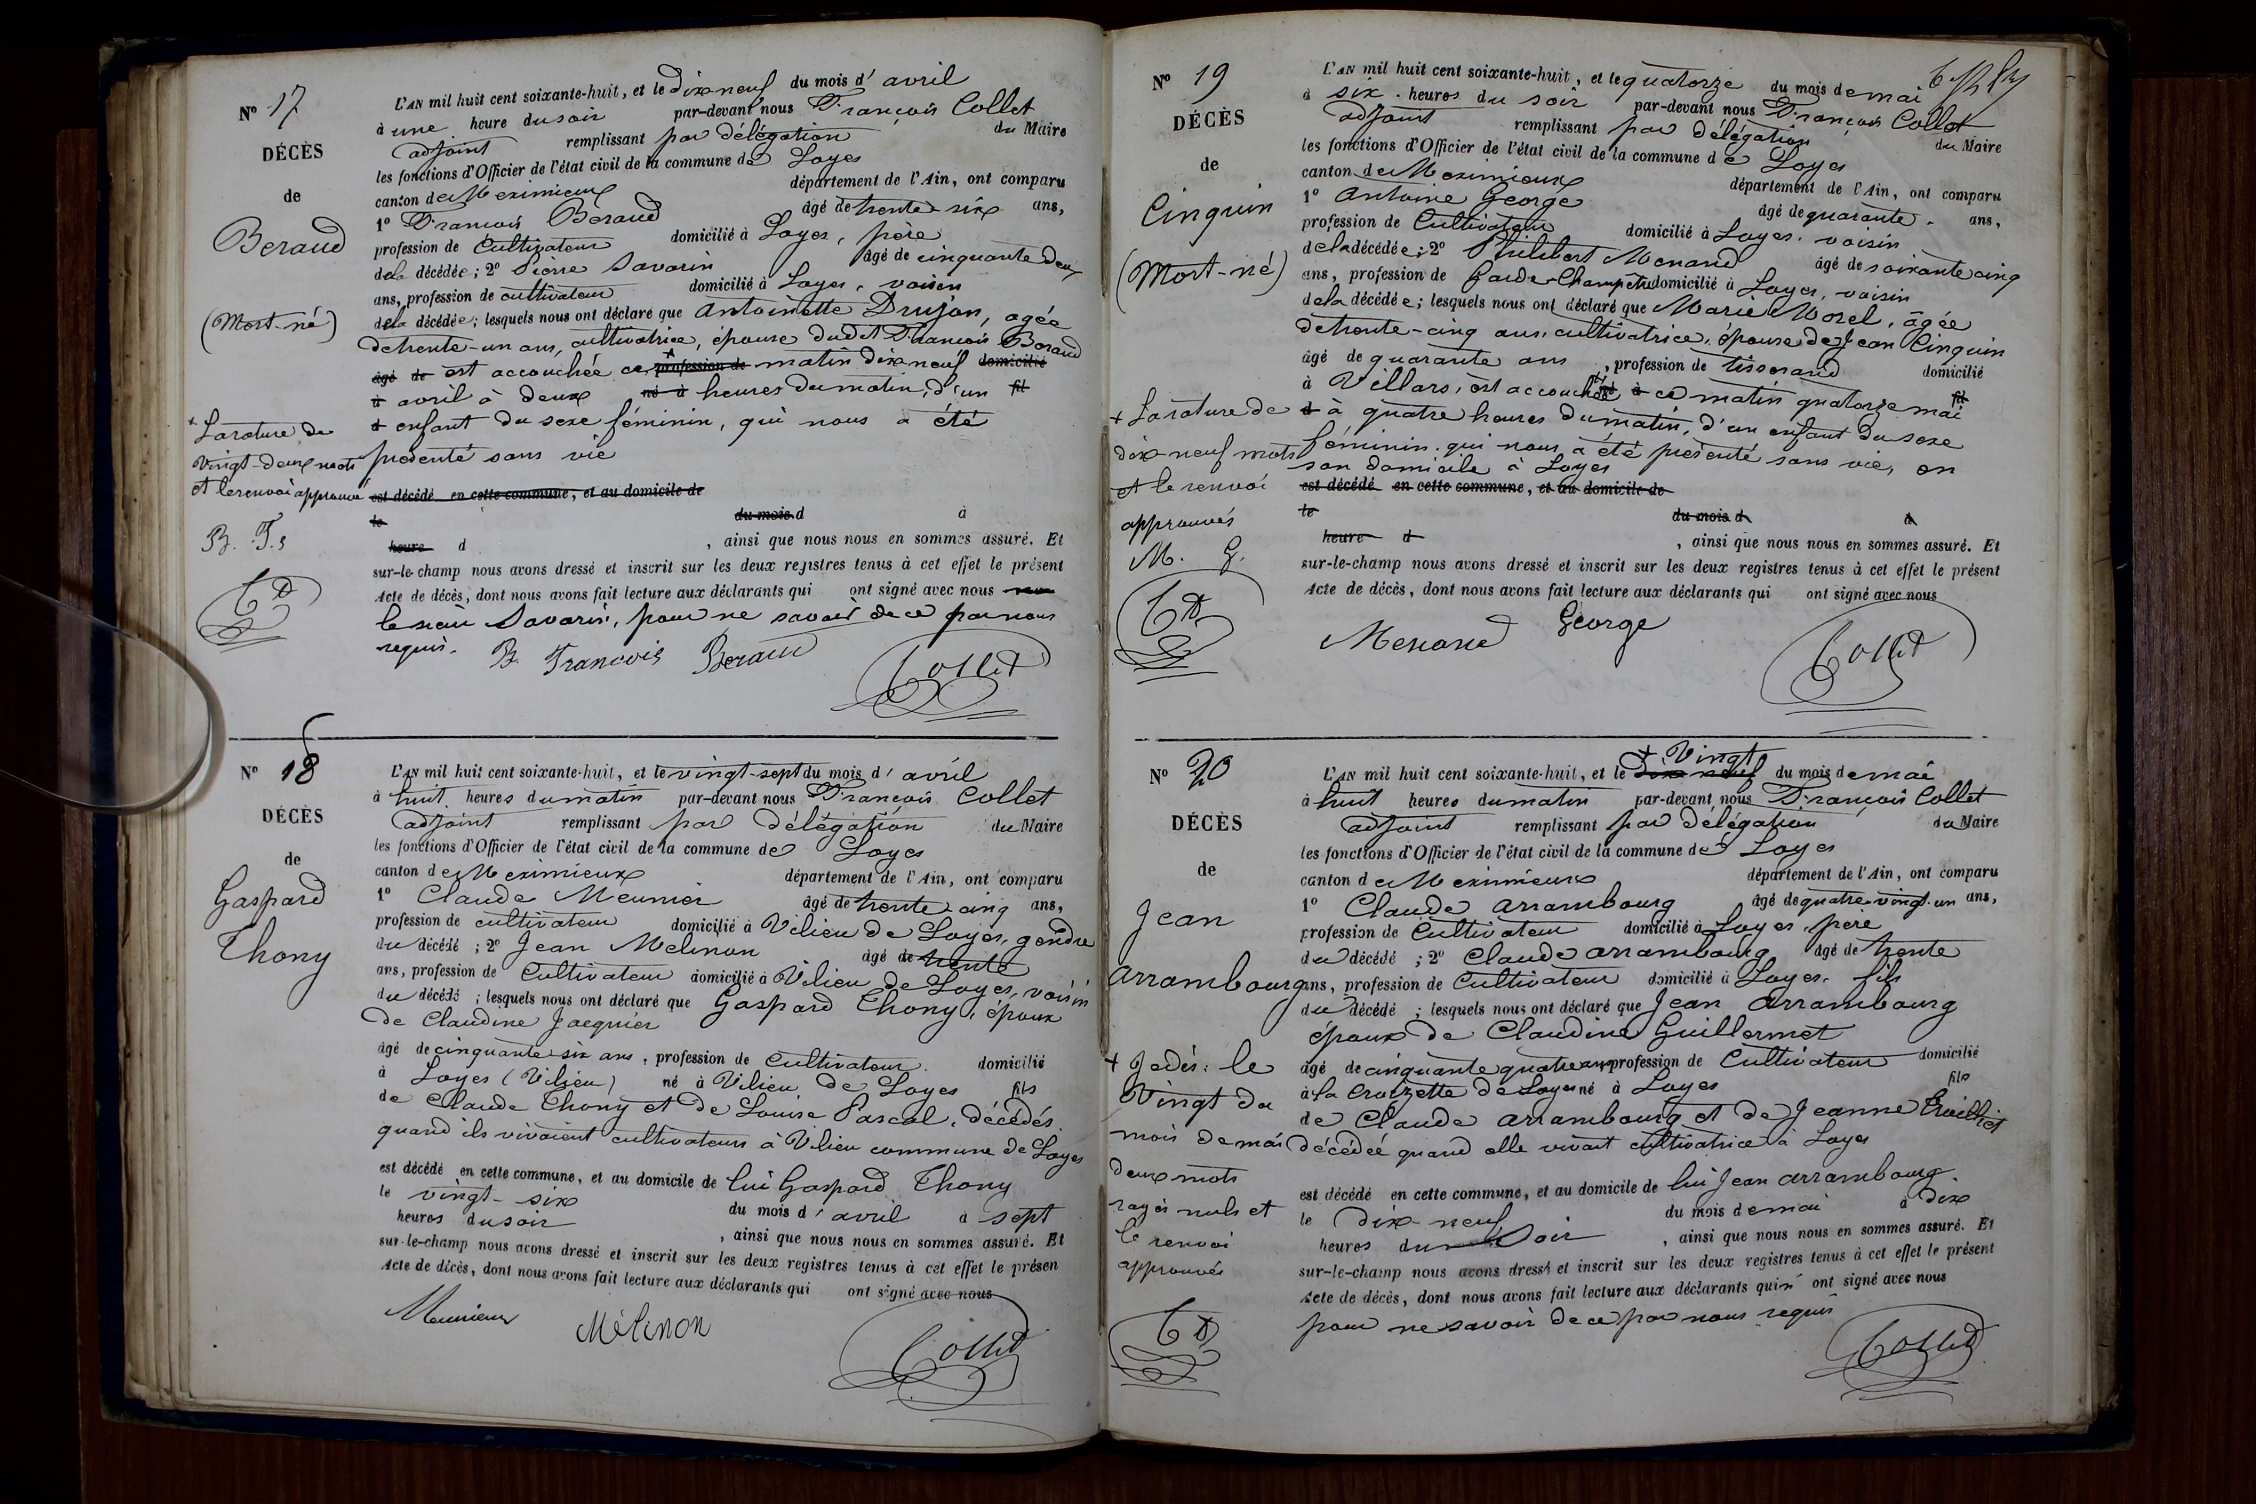 N° 17
DÉCÈS
de
Beraud
(Mort-né)
L'AN mil huit cent soixante-huit, et le dix neuf du mois d'avril
à une heure du soir par-devant nous François Collet
adjoint remplissant par délégation du Maire
les fonctions d'Officier de l'état civil de la commune de Loyes
canton de Meximieux département de l'Ain, ont comparu
1° François Béraud âgé de trente six ans,
profession de Cultivateur domicilié à Loyes, père
de la décédée; 2° Pierre Savarin âgé de cinquante deux
ans, profession de cultivateur domicilié à Loyes, voisin
de la décédée; lesquels nous ont déclaré que Antoinette Drujon, agée
de trente-un ans, cultivatrice, épouse dudit François Beraud
âgé de est accouchée ce profession de matin dix neuf domicilié
à avril à deux né à heures du matin, d'un fil
d enfant du sexe féminin, qui nous a été
présenté sans vie
est décédé en cette commune, et au domicile de
le du mois d à
heure d , ainsi que nous nous en sommes assuré. Et
sur-le-champ nous avons dressé et inscrit sur les deux registres tenus à cet effet le présent
Acte de décès, dont nous avons fait lecture aux déclarants qui ont signé avec nous
le sieur Savarin, pour ne savoir de ce par nous
requis.
B. François Beraud Collet
+ La rature de
vingt-deux mots
et le renvoi approuvé
B. F. s
N° 18
DÉCÈS
de
Gaspard
Thony
L'AN mil huit cent soixante-huit, et le vingt-sept du mois d'avril
à huit heures du matin par-devant nous François Collet
adjoint remplissant par délégation du Maire
les fonctions d'Officier de l'état civil de la commune de Loyes
canton de Meximieux département de l'Ain, ont comparu
1° Claude Meunier âgé de trente cinq ans,
profession de cultivateur domicilié à Vilieu de Loyes, gendre
du décédé; 2° Jean Melinon âgé de trente
ans, profession de Cultivateur domicilié à Vilieu de Loyes, voisin
du décédé; lesquels nous ont déclaré que Gaspard Thony, époux
de Claudine Jacquier
âgé de cinquante six ans, profession de Cultivateur domicilié
à Loyes (Vilieu) né à Vilieu de Loyes fils
de Claude Thony et de Louise Pascal, décédés
quand ils vivaient cultivateurs à Vilieu commune de Loyes
est décédé en cette commune, et au domicile de lui Gaspard Thony
le vingt-six du mois d'avril à sept
heures du soir , ainsi que nous nous en sommes assuré. Et
sur-le-champ nous avons dressé et inscrit sur les deux registres tenus à cet effet le présen
Acte de décès, dont nous avons fait lecture aux déclarants qui ont signé avec nous
Meunier Mélinon Collet
N° 19
DÉCÈS
de
Cinquin
(Mort-né)
L'AN mil huit cent soixante-huit, et le quatorze du mois de mai
à six heures du soir par-devant nous François Collet
adjoint remplissant par délégation du Maire
les fonctions d'Officier de l'état civil de la commune de Loyes
canton de Meximieux département de l'Ain, ont comparu
1° Antoine George âgé de quarante ans,
profession de Cultivateur domicilié à Loyes, voisin
de la décédée; 2° Philibert Menand âgé de soixante cinq
ans, profession de Garde-Champêtre domicilié à Loyes, voisin
de la décédée; lesquels nous ont déclaré que Marie Morel, âgée
de trente-cinq ans, cultivatrice, épouse de Jean Cinquin
âgé de quarante ans, profession de tisserand domicilié
à Villars, est accouchée à ce matin quatorze mai fil
d à quatre heures du matin, d'un enfant du sexe
féminin, qui nous a été présenté sans vie, en
son domicile à Loyes
est décédé en cette commune, et au domicile de
le du mois d à
heure d , ainsi que nous nous en sommes assuré. Et
sur-le-champ nous avons dressé et inscrit sur les deux registres tenus à cet effet le présent
Acte de décès, dont nous avons fait lecture aux déclarants qui ont signé avec nous
Menand George Collet
+ La rature de
dix-neuf mots
et le renvoi
approuvés
M. G.
N° 20
DÉCÈS
de
Jean
Arrambourg
L'AN mil huit cent soixante-huit, et le dix neuf + Vingt du mois de mai
à huit heures du matin par-devant nous François Collet
adjoint remplissant par délégation du Maire
les fonctions d'Officier de l'état civil de la commune de Loyes
canton de Meximieux département de l'Ain, ont comparu
1° Claude Arrambourg âgé de quatre-vingt-un ans,
profession de Cultivateur domicilié à Loyes, père
du décédé; 2° Claude Arrambourg âgé de trente
ans, profession de Cultivateur domicilié à Loyes, fils
du décédé; lesquels nous ont déclaré que Jean Arrambourg
époux de Claudine Guillermet
âgé de cinquante quatre ans profession de Cultivateur domicilié
à la Croizette de Loyes né à Loyes fils
de Claude Arrambourg et de Jeanne
décédée quand elle vivait cultivatrice à Loyes
est décédé en cette commune, et au domicile de lui Jean Arrambourg
le dix-neuf du mois de mai à dix
heures du Soir , ainsi que nous nous en sommes assuré. Et
sur-le-champ nous avons dressé et inscrit sur les deux registres tenus à cet effet le présent
Acte de décès, dont nous avons fait lecture aux déclarants qui n'ont signé avec nous
pour ne savoir de ce par nous requis
Collet
+ Je dis: le
Vingt du
mois de mai
deux mots
rayés nuls et
le renvoi
approuvés